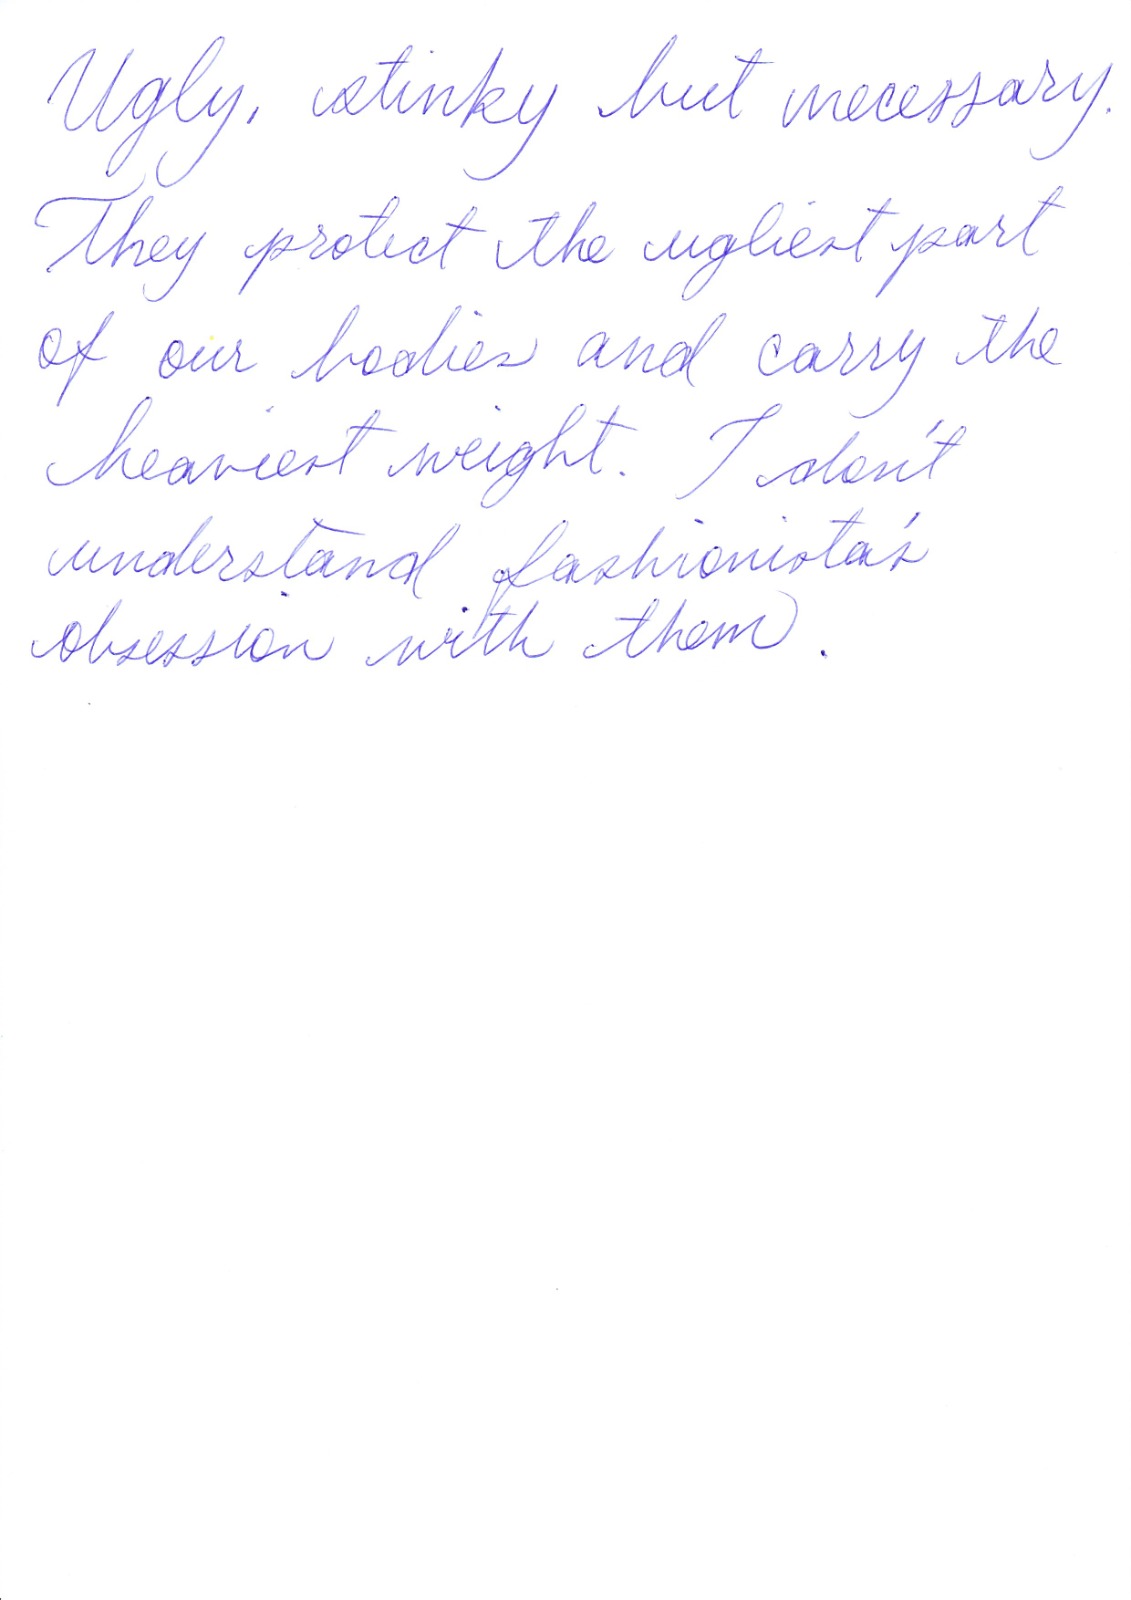 Ugly, stinky but necessary.
They protect the ugliest part
of our bodies and carry the
heaviest weight. I don't
understand fashionista's
obsession with them.